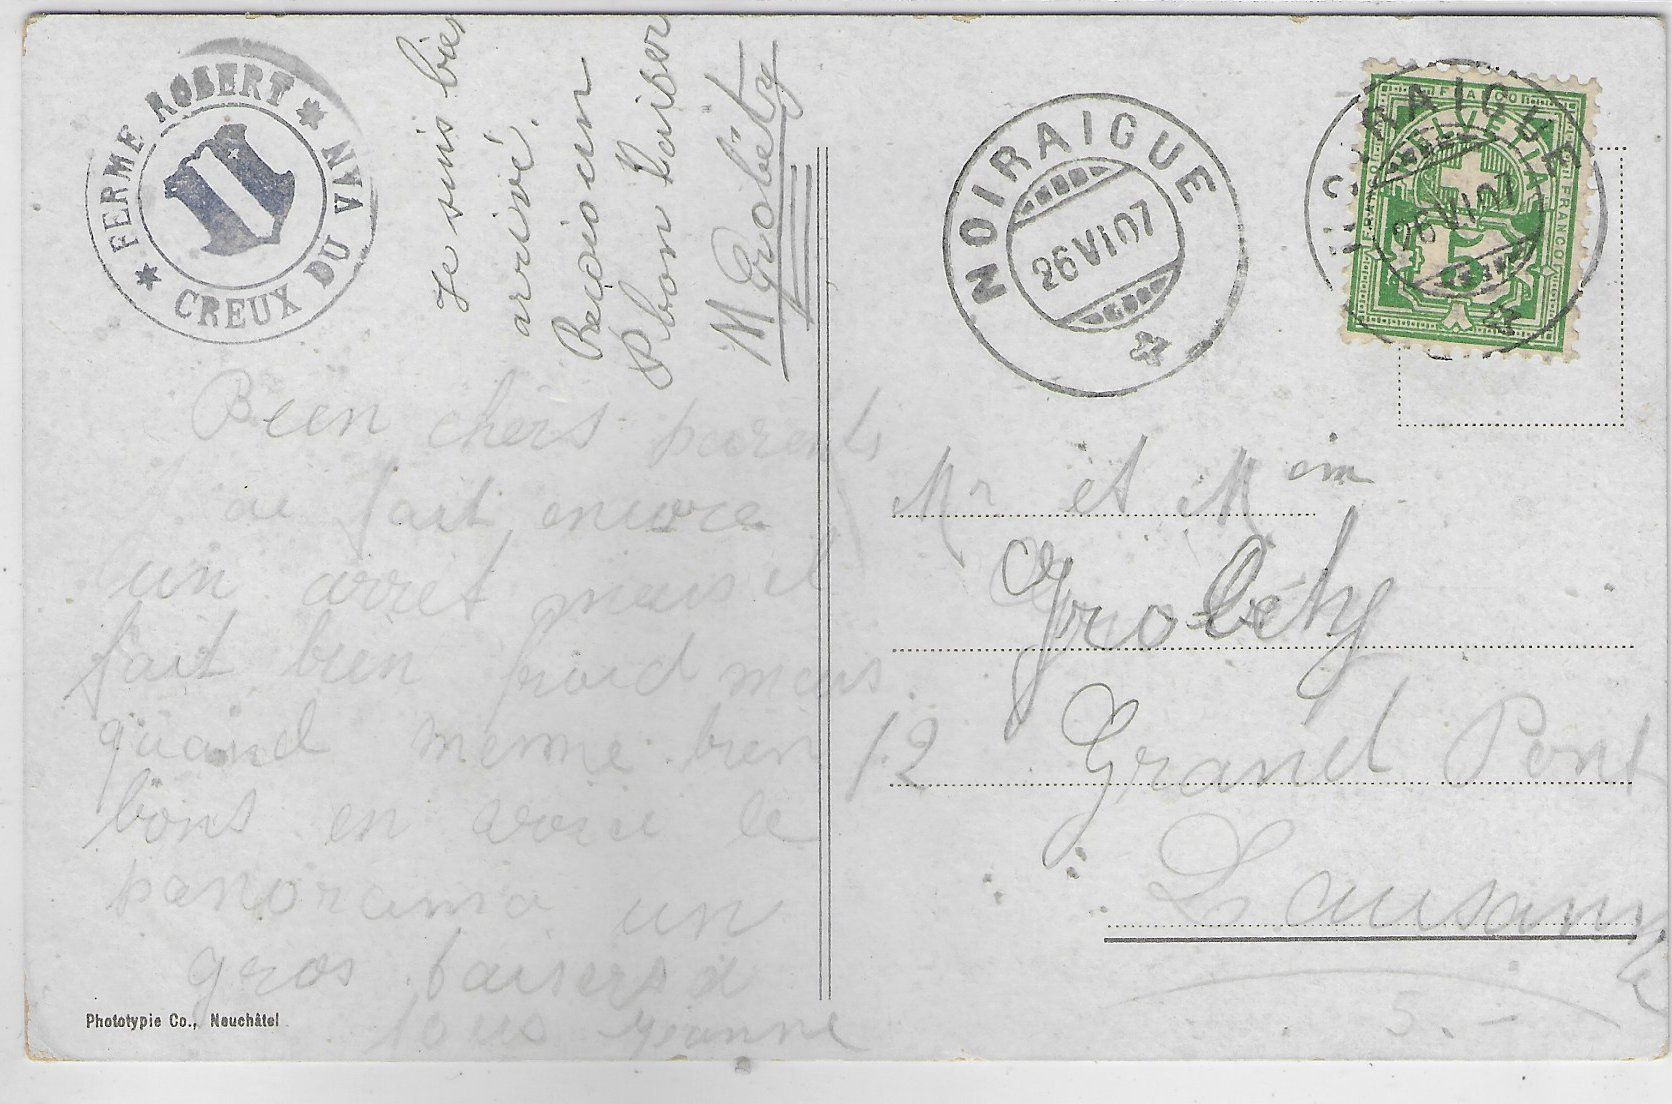 ★ FERME ROBERT ★
CREUX DU VAN
Je suis bien
arrivé.
Recois un
bon baiser
M Grobéty
Bien chers parents
J ai fait encore
un arret mais il
fait bien froid mais
quand meme bien
bons en voici le
panorama un
gros baisers a
tous Yvonne
Phototypie Co., Neuchâtel
NOIRAIGUE
26 VI 07
NOIRAIGUE
26 VI 07
FRANCO
HELVETIA
FRANCO
FRANCO
5
Mr et Mme
Grobéty
12 Grand Pont
Lausanne
5.-